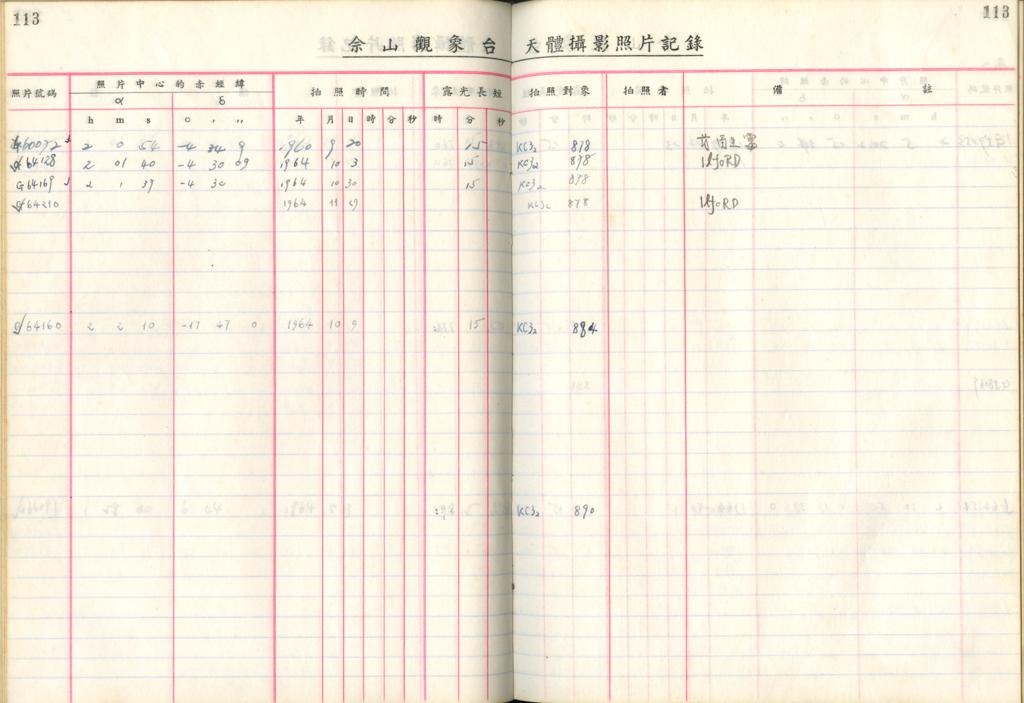 113 113
佘山觀象台 天體攝影照片記錄
照片號碼 照片中心的赤經緯 拍照時間 露光長短 拍照對象 拍照者 備 註
α δ
h m s ° ' " 年 月 日 時 分 秒 時 分 秒
G60072 2 0 54 -4 34 9 1960 9 20 15 KC32 878
G64128 2 01 40 -4 30 09 1964 10 3 15 KC32 878 ILFORD
G64169 2 1 39 -4 30 1964 10 30 15 KC32 878
G64210 1964 11 29 KC32 878 ILFORD
G64160 2 2 10 -17 47 0 1964 10 9 15 KC32 884
KC32 890